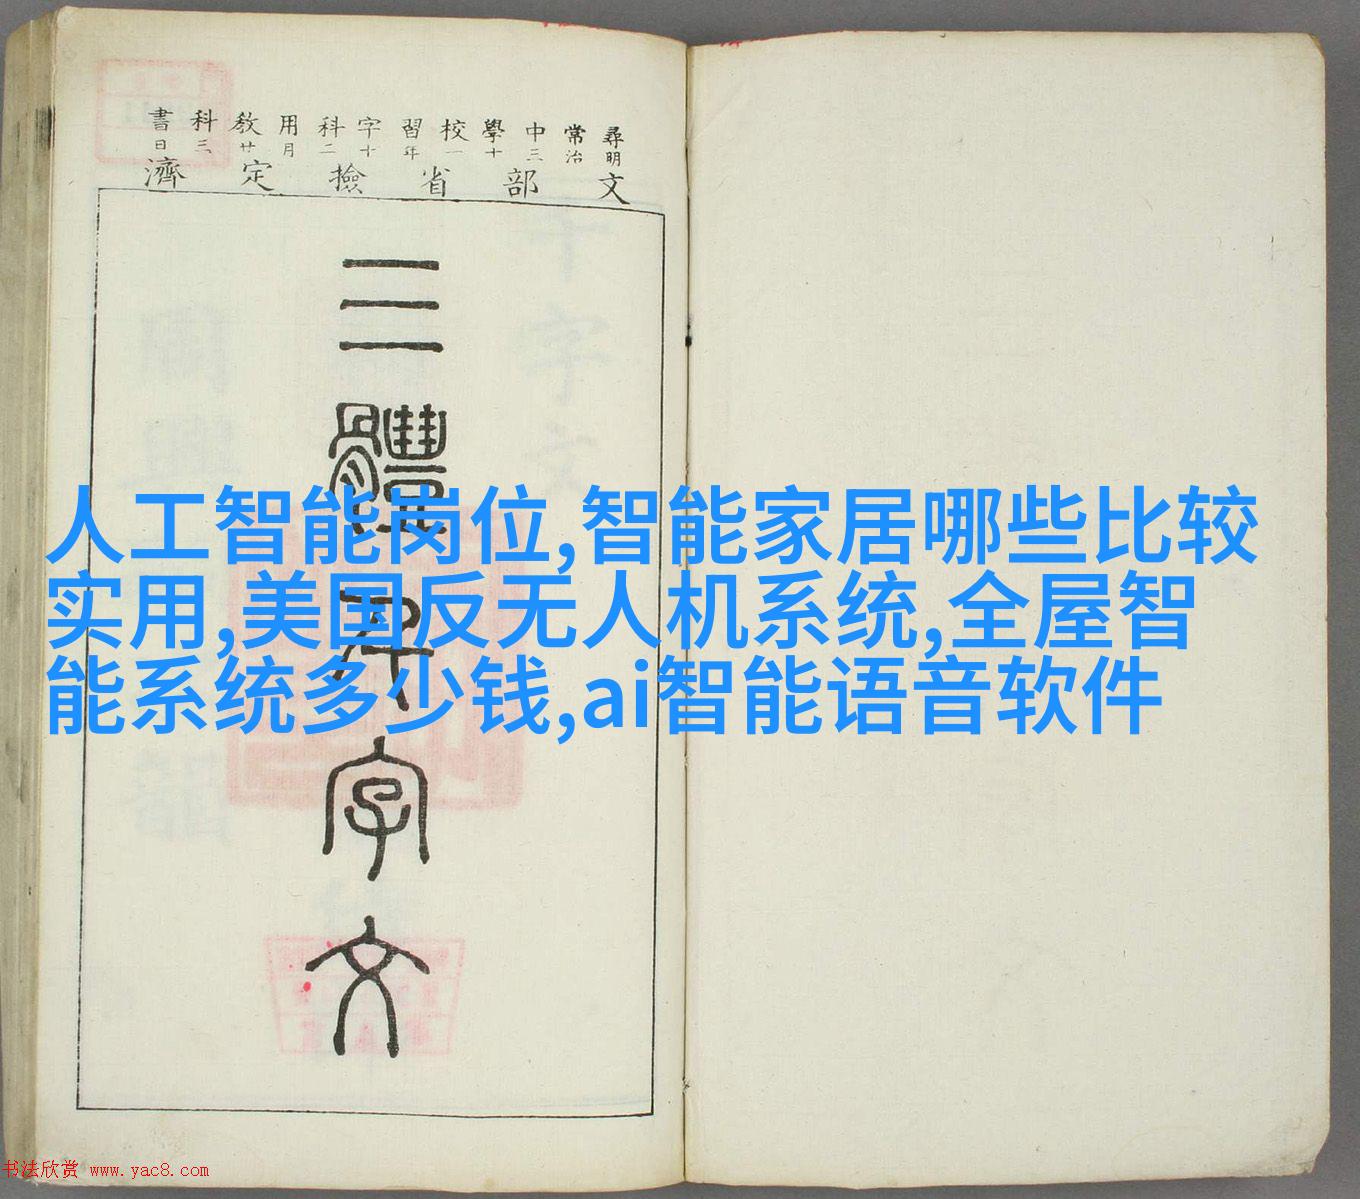 尋常中學校習字科用教科書
明治三十一年十二月廿三日
文部省撿定濟
三體千字文
人工智能岗位,智能家居哪些比较
实用,美国反无人机系统,全屋智
能系统多少钱,ai智能语音软件
书法欣赏 www.yac8.com